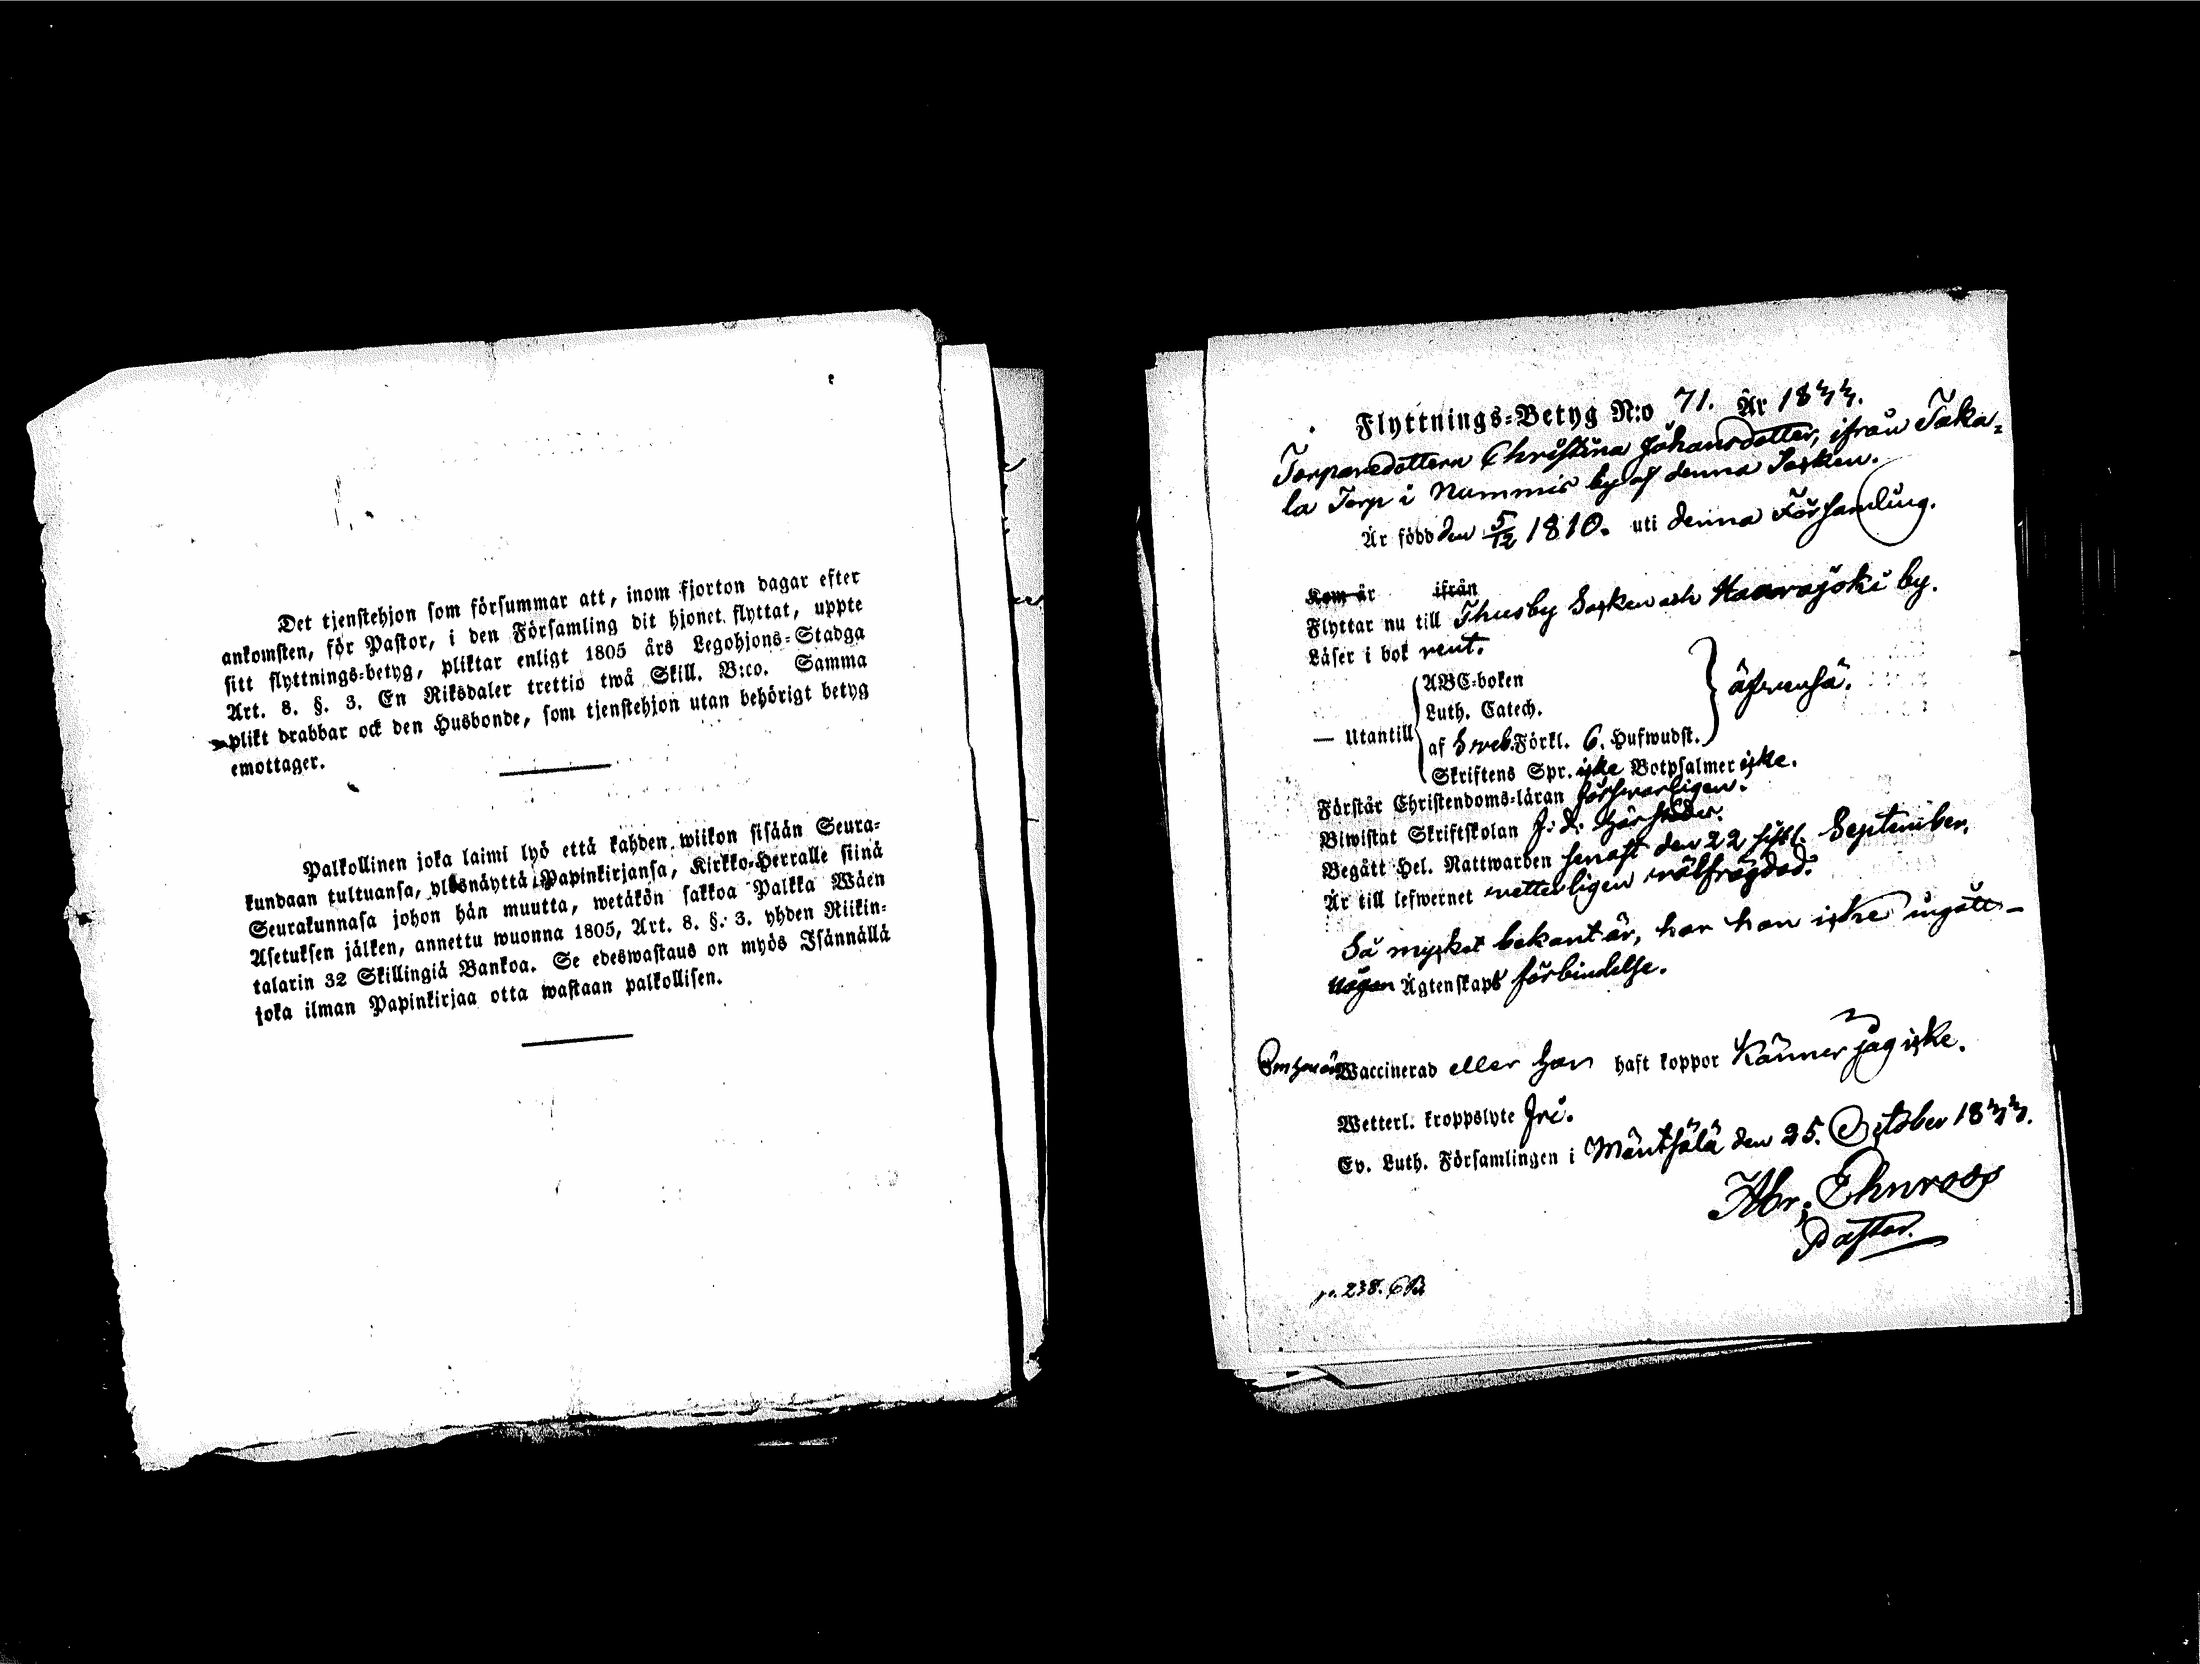 Det tjenstehjon som försummar att, inom fjorton dagar efter
ankomsten, för Pastor, i den Församling dit hjonet flyttat, uppte
sitt flyttnings-betyg, pliktar enligt 1805 års Legohjons-Stadga
Art. 8. §. 3. En Riksdaler trettio twå Skill. B:co. Samma
plikt drabbar ock den Husbonde, som tjenstehjon utan behörigt betyg
emottager.
Palkollinen joka laimi lyö että kahden wiikon sisään Seura-
kundaan tultuansa, ylösnäyttä Papinkirjansa, Kirkko-Herralle siinä
Seurakunnasa johon hän muutta, wetäkön sakkoa Palkka Wäen
Asetuksen jälken, annettu wuonna 1805, Art. 8. §. 3. yhden Riikin-
talarin 32 Skillingiä Bankoa. Se edeswastaus on myös Isännällä
joka ilman Papinkirjaa otta wastaan palkollisen.
Flyttnings-Betyg N:o 71. År 1844.
Torparedottern Christina Johansdotter, ifrån Taka-
la Torp i Nummis by af denna Socken.
Är född den 5/12 1810. uti denna Församling.
Kom år ifrån
Flyttar nu till Thusby Socken och Haarajoki by.
Läser i bok rent.
— Utantill
ABC-boken
Luth. Catech.
af Sveb. Förkl. 6. Hufwudst.
äfvenså.
Skriftens Spr. icke Botpsalmer icke.
Förstår Christendoms-läran försvarligen.
Biwistat Skriftskolan
Begått Hel. Nattwarden senast den 22 sistl. September.
Är till lefwernet vetterligen välfrägdad.
Så mycket bekant är, har hon icke ingått
någon Ägtenskaps förbindelse.
Om hon är Waccinerad eller har haft koppor Känner jag icke.
Wetterl. kroppslyte fri.
Ev. Luth. Församlingen i Mäntsälä den 25. October 1844.
Abr. Ehnroos
Pastor.
p. 238.